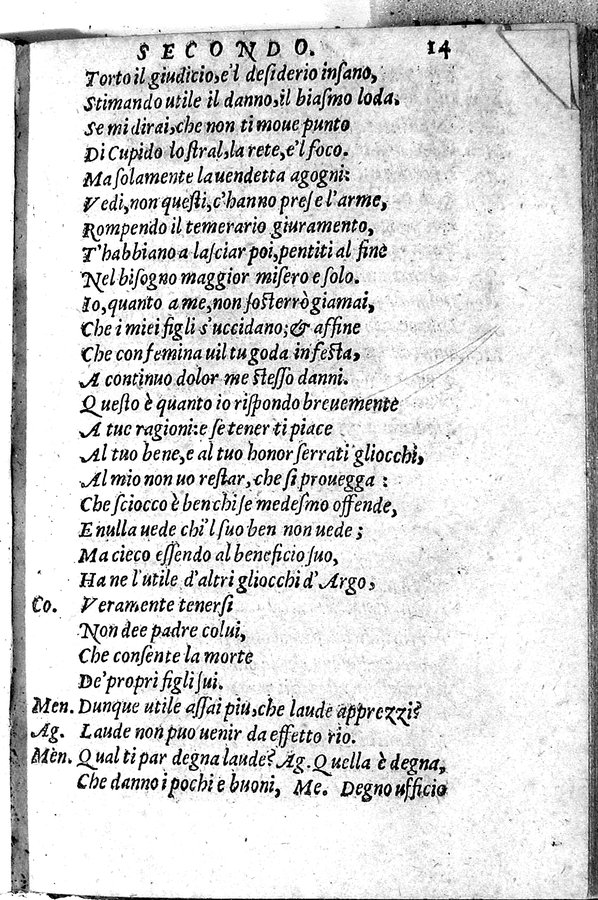 SECONDO. 14
Torto il giudicio, e'l desiderio insano,
Stimando utile il danno, il biasmo loda.
Se mi dirai, che non ti moue punto
Di Cupido lo stral, la rete, e'l foco.
Ma solamente la uendetta agogni:
Vedi, non questi, c'hanno prese l'arme,
Rompendo il temerario giuramento,
T'habbiano a lasciar poi, pentiti al fine
Nel bisogno maggior misero e solo.
Io, quanto a me, non sosterrò giamai,
Che i miei figli s'uccidano; & affine
Che con femina uil tu goda in festa,
A continuo dolor me stesso danni.
Questo è quanto io rispondo breuemente
A tue ragioni: e se tener ti piace
Al tuo bene, e al tuo honor serrati gliocchi,
Al mio non uo restar, che si prouegga :
Che sciocco è ben chi se medesmo offende,
E nulla uede chi'l suo ben non uede ;
Ma cieco essendo al beneficio suo,
Ha ne l'utile d'altri gliocchi d'Argo,
Co. Veramente tenersi
Non dee padre colui,
Che consente la morte
De' propri figli sui.
Men. Dunque utile assai più, che laude apprezzi?
Ag. Laude non puo uenir da effetto rio.
Men. Qual ti par degna laude? Ag. Quella è degna,
Che danno i pochi e buoni, Me. Degno ufficio